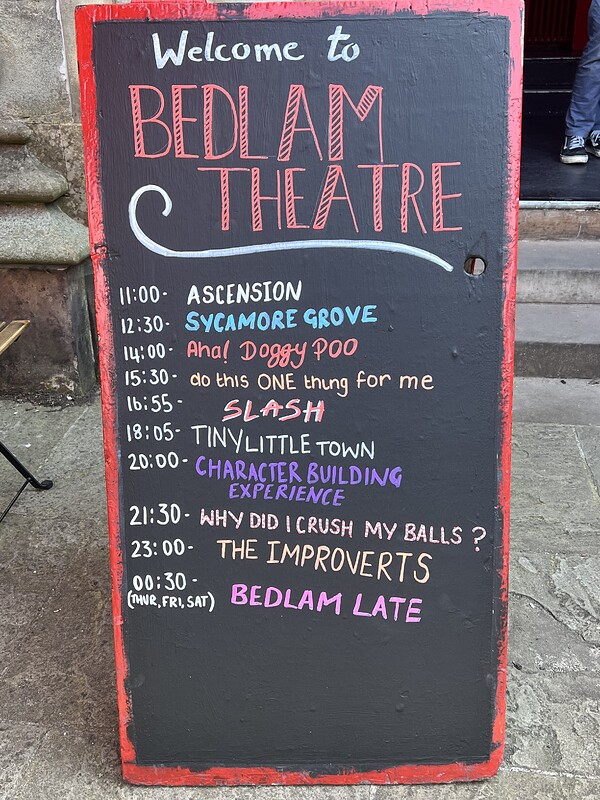 Welcome to
BEDLAM
THEATRE
11:00- ASCENSION
12:30- SYCAMORE GROVE
14:00- Aha! Doggy POO
15:30- do this ONE thing for me
16:55- SLASH
18:05- TINY LITTLE TOWN
20:00- CHARACTER BUILDING
EXPERIENCE
21:30- WHY DID I CRUSH MY BALLS ?
23:00- THE IMPROVERTS
00:30-
(THUR, FRI, SAT) BEDLAM LATE